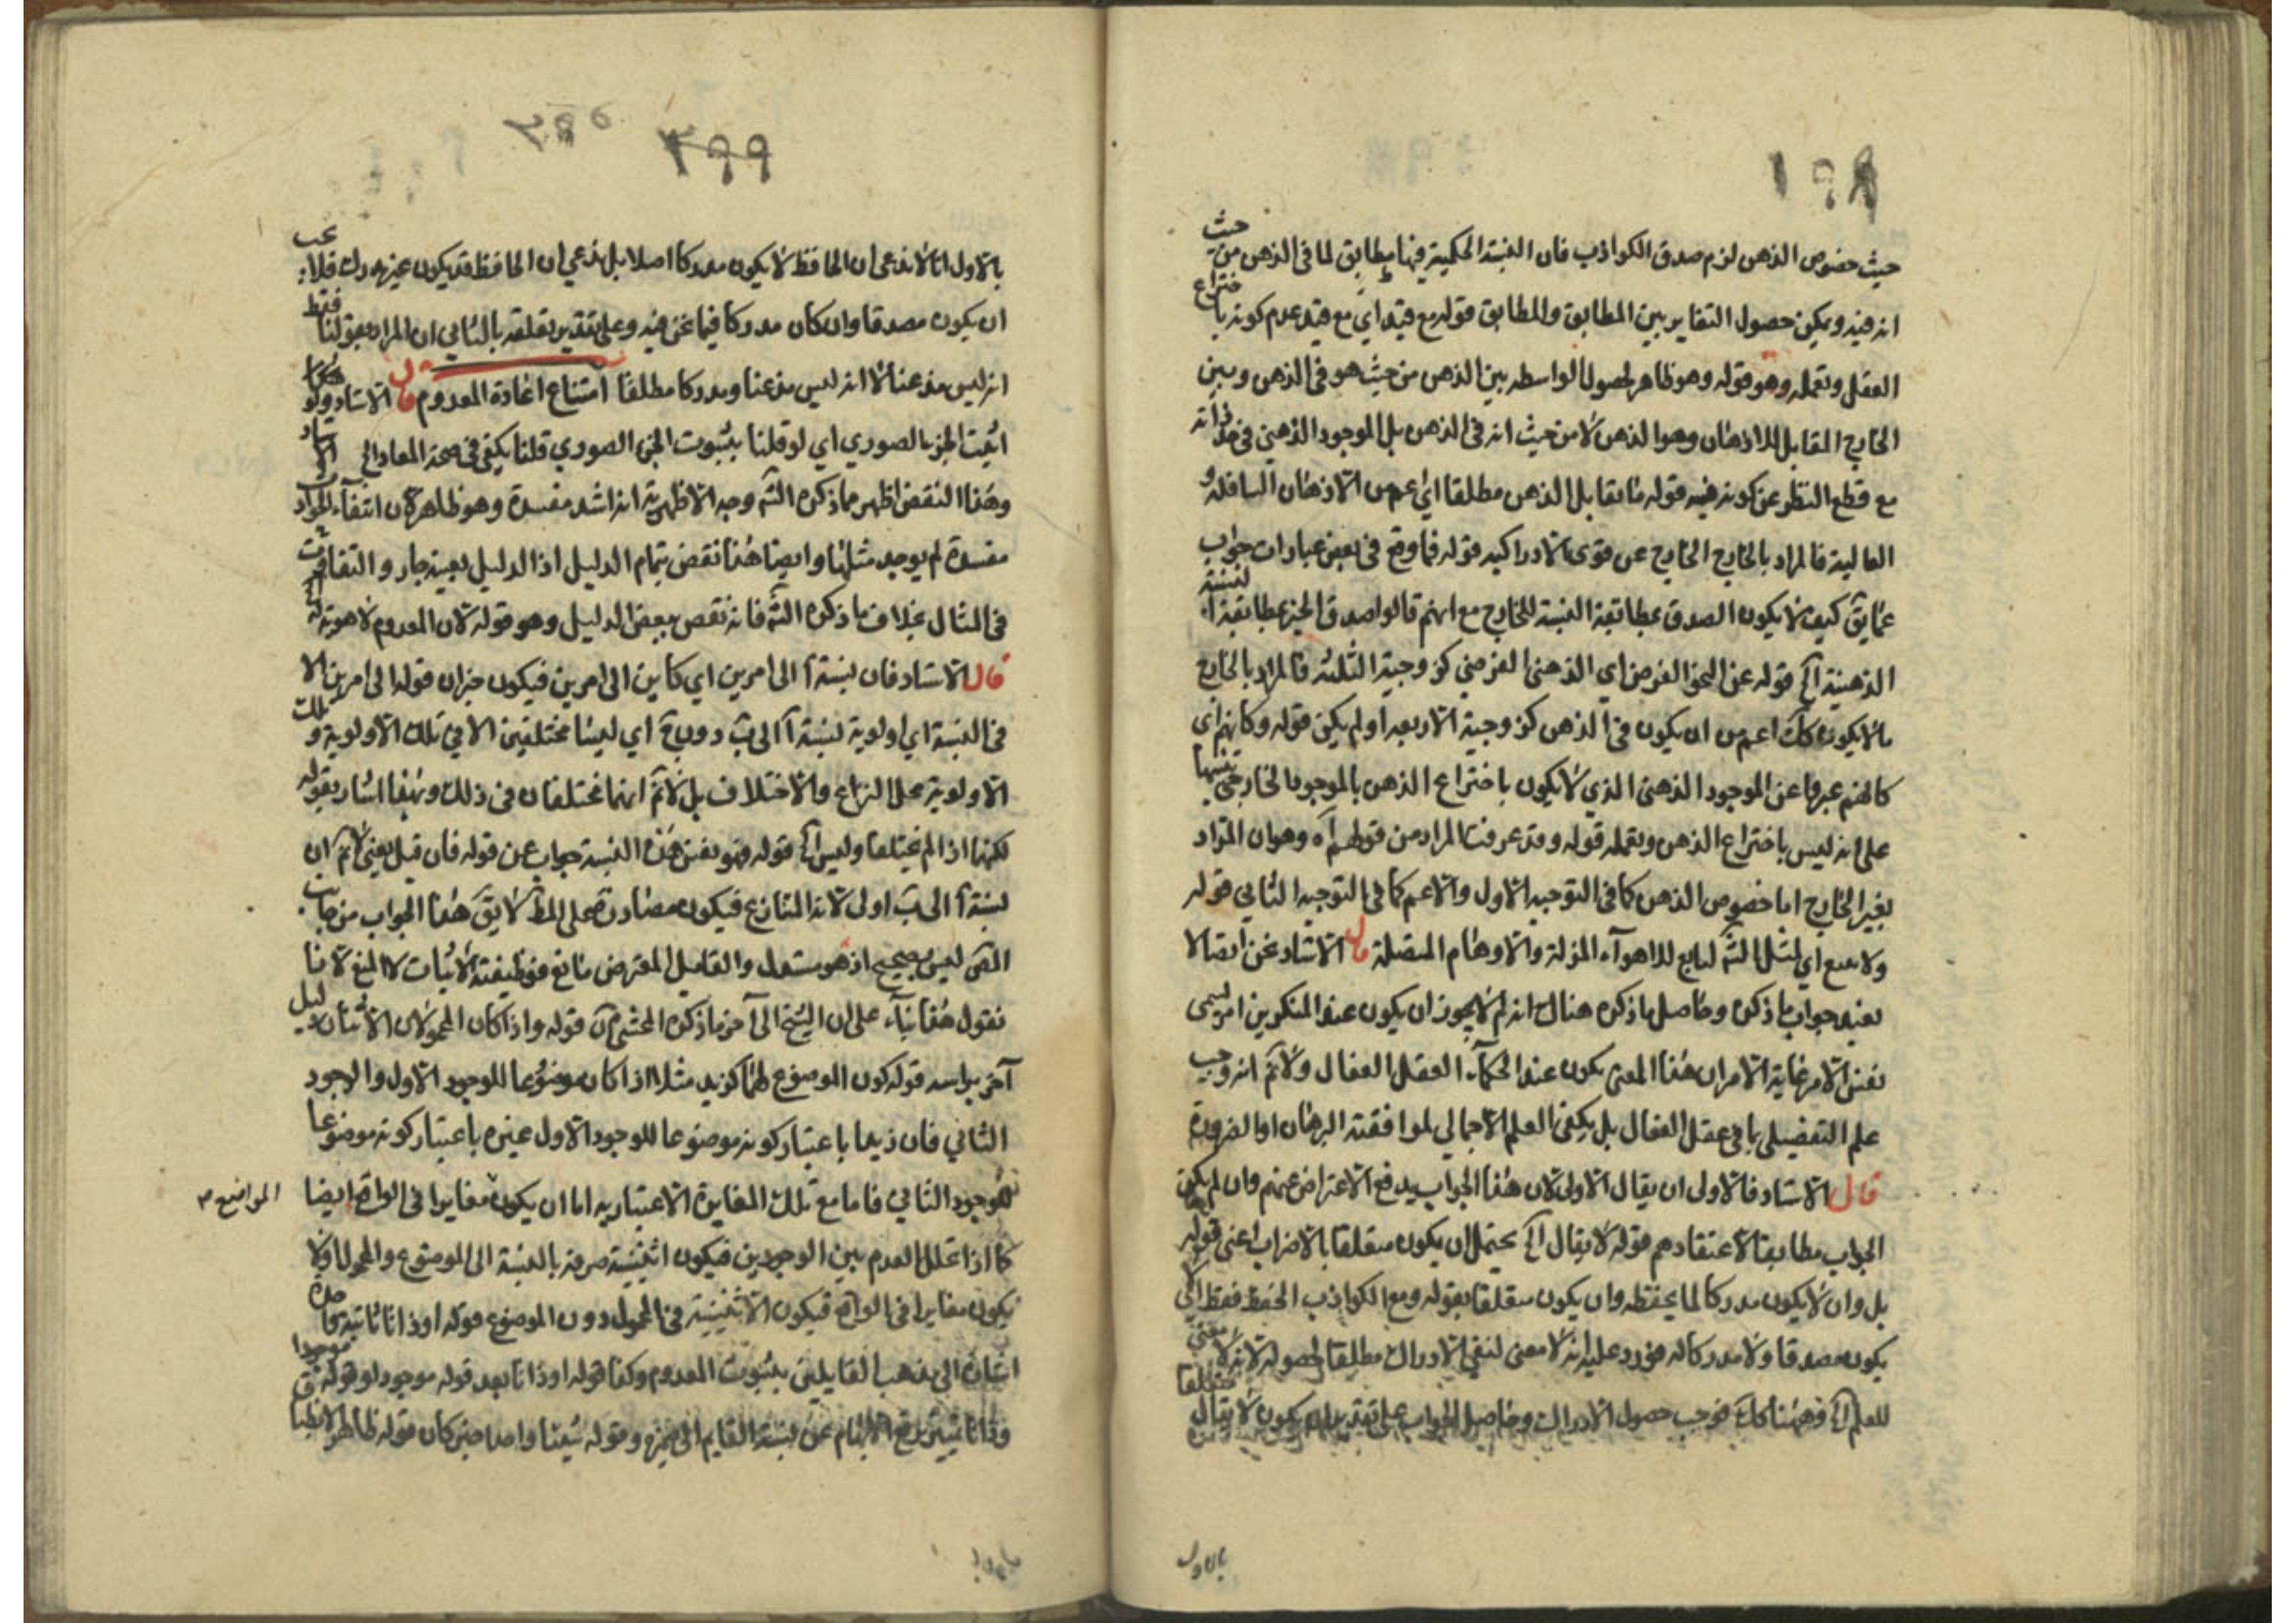 ١٩٨
حيث خصوص الذهن لزم صدق الكواذب فان النسبة الحكمية فيها يطابق لما فى الذهن من حيث
انه فيه ويكفى حصول التغاير بين المطابق والمطابق قوله مع قيد اي مع قيد عدم كونه باختراع
العقل وتعمله وهو قوله وهو ظاهر لحصول الواسطه بين الذهن من حيث هو فى الذهن وبين
الخارج المقابل للاذهان وهو الذهن لا من حيث انه فى الذهن بل الموجود الذهني في حد ذاته
مع قطع النظر عن كونه فيه قوله ما يقابل الذهن مطلقا اي اعم من الاذهان السافلة و
العالية فالمراد بالخارج الخارج عن قوى الادراكيه قوله فما وقع فى بعض عبارات جواب
عما يق كيف لا يكون الصدق بمطابقة النسبة للخارج مع انهم قالوا صدق الخبر بمطابقة النسبة
الذهنية آه قوله عن النحو الفرضي اي الذهنى الفرضي كزوجية الثلثه فالمراد بالخارج
ما لا يكون كك اعم من ان يكون فى الذهن كزوجية الاربعه او لم يكن قوله وكانهم اى
كانهم عبروا عن الموجود الذهنى الذي لا يكون باختراع الذهن بالموجود الخارجي تنبيها
على انه ليس باختراع الذهن وتعمله قوله وقد عرفت المراد من قولهم آه وهو ان المراد
بغير الخارج اما خصوص الذهن كما فى التوجيه الاول والاعم كما فى التوجيه الثاني قوله
ولا يمنع اي لمثل الشه لتابع للاهواء المزلة والاوهام المضلة قال الاستاد نحن ايضا لا
نعيد جواب ما ذكره وحاصل ما ذكره هناك انه لم لا يجوز ان يكون عند المنكرين امر يسمى
نفس الامر غاية الامر ان هذا المعنى يكون عند الحكماء العقل الفعال ولا نم انه وجب
علم التفصيلى بما فى عقل الفعال بل يكفى العلم الاجمالي لموافقته البرهان او الضرورة
قال الاستاد فالاولى ان يقال الاولى لان هذا الجواب يدفع الاعتراض عنهم وان لم يكن هذا
الجواب مطابقا لاعتقادهم قوله لا يقال آه يحتمل ان يكون متعلقا بالاضراب اعنى قوله
بل وان لا يكون مدركا لما يحفظه وان يكون متعلقا بقوله ومع الكواذب الحفظ فقط اى لا
يكون مصدقا ولا مدركا له فورد عليه انه لا معنى لنفى الادراك مطلقا لحصوله لانه لا معنى
للعلم آه وههنا كك فوجب حصول الادراك وحاصل الجواب على تقدير ان يكون لا يقال متعلقا
بالاول
١٩٩
بالاول انا لا ندعى ان الحافظ لا يكون مدركا اصلا بل ندعي ان الحافظ قد يكون غير مدرك فلا يجب
ان يكون مصدقا وان كان مدركا فيما نحن فيه وعلى تقدير تعلقه بالثاني ان المراد بقولنا فقط
انه ليس مذعنا لا انه ليس مذعنا ومدركا مطلقا امتناع اعادة المعدوم قال الاستاد ولو
اثبت الجزء الصوري اي لو قلنا بثبوت الجزء الصوري قلنا يكفى فى صحة المعاد الخ
وهذا النقض اظهر مما ذكره الشه وجه الاظهرية انه اشد مفسدة وهو ظاهر لان انتفاء الجواد
مفسدة لم يوجد مثلها وايضا هذا نقض بتمام الدليل اذ الدليل بعينه جار و
فى المثال بخلاف ما ذكره الشه فانه نقض ببعض الدليل وهو قوله لان المعدوم لا هوية له
قال الاستاد فان نسبة أ الى امرين اي كاين الى امرين فيكون خبران قوله الى امرين الا
فى النسبة اي اولوية نسبة أ الى ب دون ج اي ليسا مختلفين الا في تلك الاولوية و تلك
الاولوية محل النزاع والاختلاف بل لا نم انهما مختلفان فى ذلك وبهذا اشار بقوله
لكنها اذا لم يختلفا وليس آه قوله فهو نفس هذه النسبة جواب عن قوله فان قيل يعني لا نم ان
نسبة أ الى ب اولى لانه المتنازع فيكون مصادرة على المط لا يق هذا الجواب من جانب
المص ليس بصحيح اذ هو مستدل والقايل المعترض مانع فوظيفته الاثبات لا المنع لانا
نقول هذا بناء على ان الشيخ الى آخر ما ذكره المحشى آن قوله واذا كان المحمولان الاثنان دليل
آخر براسه قوله كون الموضوع لهما كزيد مثلا اذا كان موضوعا للوجود الاول والوجود
الثاني فان زيدا باعتبار كونه موضوعا للوجود الاول غيره باعتبار كونه موضوعا
للوجود الثاني فاما مع تلك المغايرة الاعتباريه اما ان يكون مغايرا فى الواقع ايضا
المواضيع
كما اذا تخلل العدم بين الوجودين فيكون اثنينية صرفه بالنسبة الى الموضوع والمحمول اولا
يكون مغايرا فى الواقع فيكون الاثنينية فى المحمول دون الموضوع قوله او ذاتا ثابته
اشارة الى مذهب القايلين بثبوت المعدوم وكذا قوله او ذاتا بعد قوله موجود لو قوله
وذاتا شيئين رفع الابهام عن نسبة القايم الى ضميره وقوله شيئا واحدا خبر كان قوله ظاهر